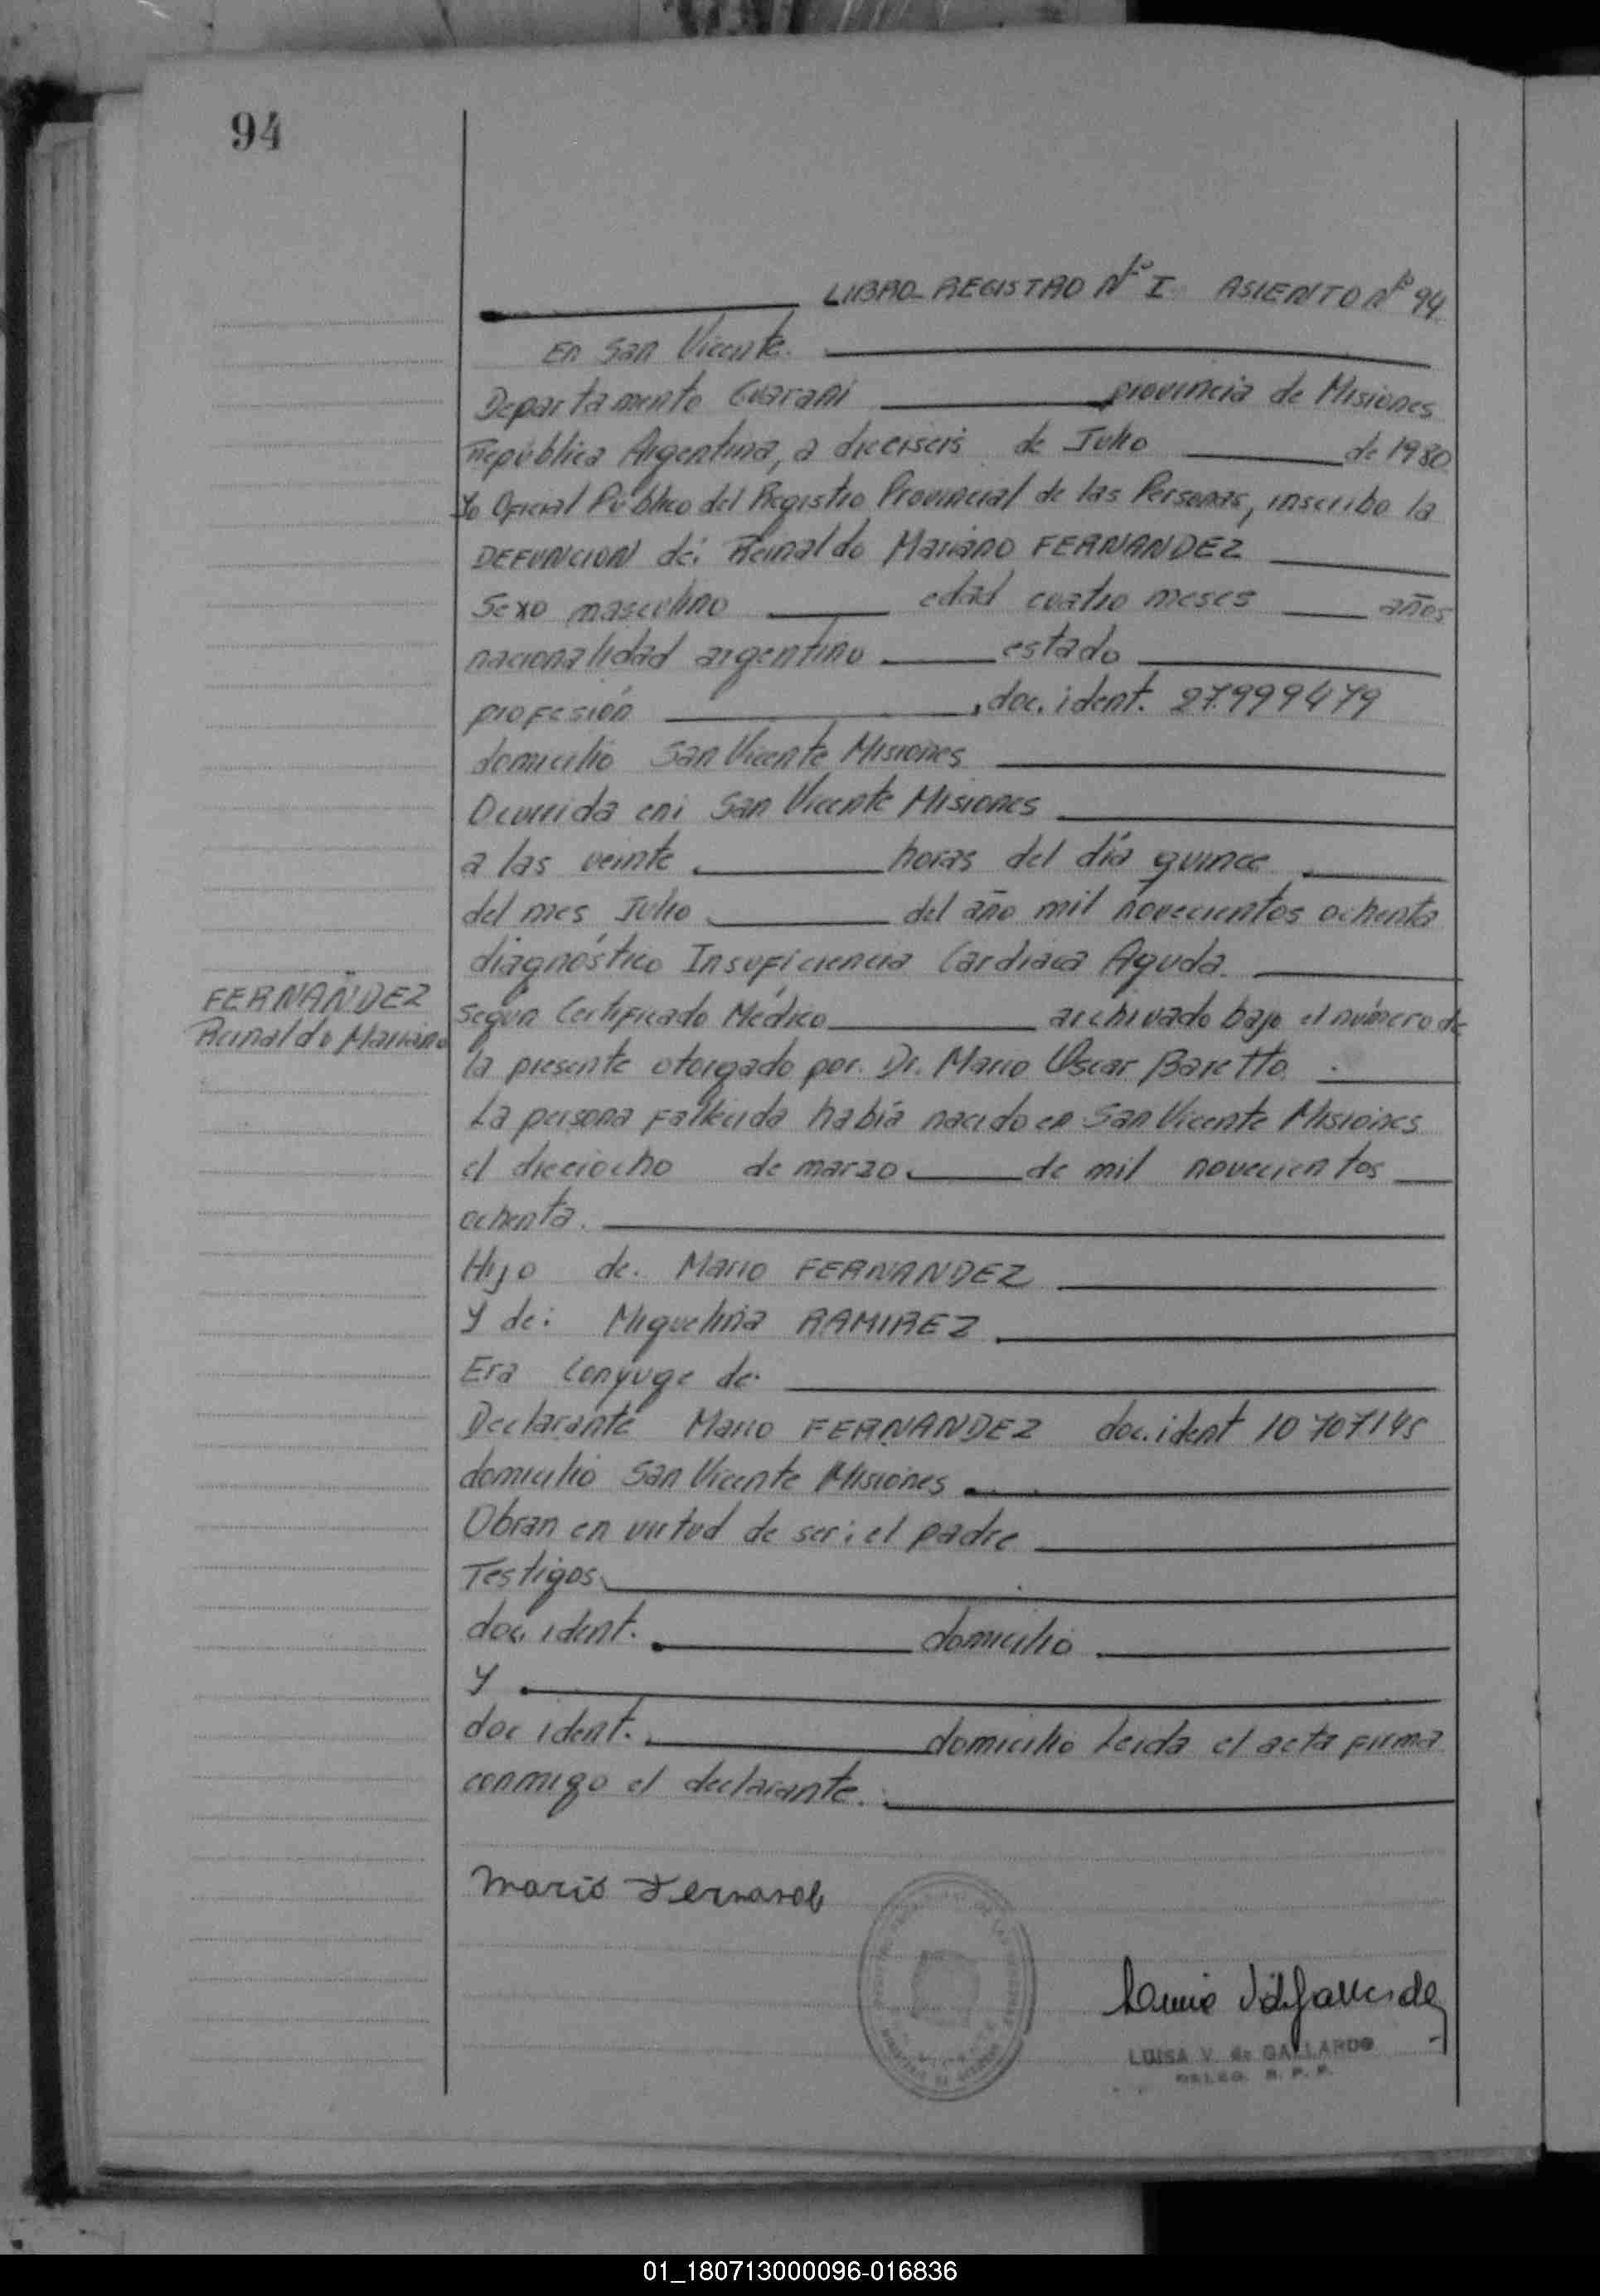 94
LIBRO REGISTRO Nº I ASIENTO Nº 94
En San Vicente.
Departamento Guarani provincia de Misiones
República Argentina, a dieciseis de Julio de 1980
Yo Oficial Público del Registro Provincial de las Personas, inscribo la
DEFUNCION de: Reinaldo Mariano FERNANDEZ
Sexo masculino edad cuatro meses años
nacionalidad argentino estado
profesión , doc. ident. 27.999479
domicilio San Vicente Misiones
Ocurrida en: San Vicente Misiones
a las veinte horas del día quince
del mes Julio del año mil novecientos ochenta
diagnóstico Insuficiencia Cardiaca Aguda.
según Certificado Médico archivado bajo el número de
la presente otorgado por. Dr. Mario Oscar Baretto.
La persona fallecida había nacido en San Vicente Misiones
el dieciocho de marzo de mil novecientos
ochenta.
Hijo de. Mario FERNANDEZ
y de: Miguelina RAMIREZ
Era Conyuge de.
Declarante Mario FERNANDEZ doc. ident 10707145
domicilio San Vicente Misiones
Obran en virtud de ser: el padre
Testigos
doc. ident. domicilio
y
doc ident. domicilio Leida el acta firma
conmigo el declarante.
FERNANDEZ
Reinaldo Mariano
Mario
LUISA V. de GALLARDO
DELEG. R. P. P.
01_180713000096-016836